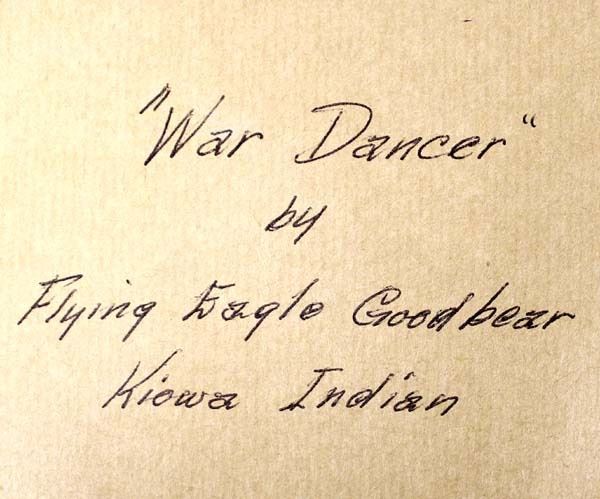 "War Dancer"
by
Flying Eagle Goodbear
Kiowa Indian